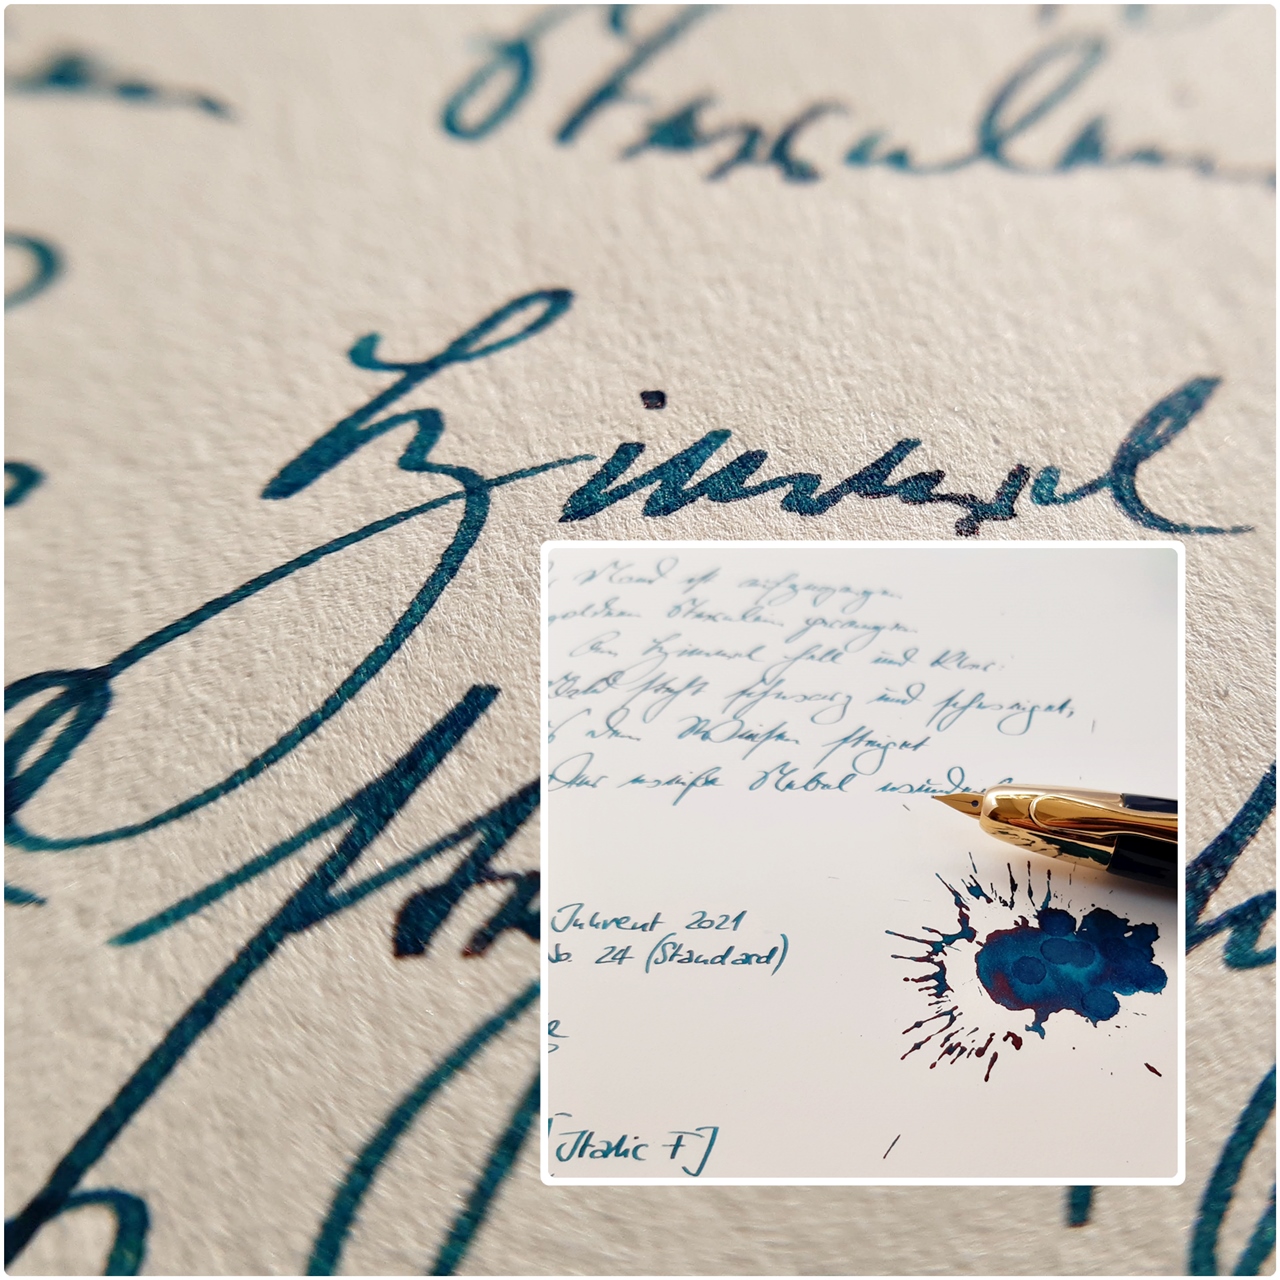 Sternlein
Himmel
Mond ist aufgegangen
goldnen Sternlein prangen
Am Himmel hell und klar:
Wald steht schwarz und schweiget,
den Wiesen steiget
Der weiße Nebel
Inkvent 2021
No. 24 (Standard)
[Italic F]